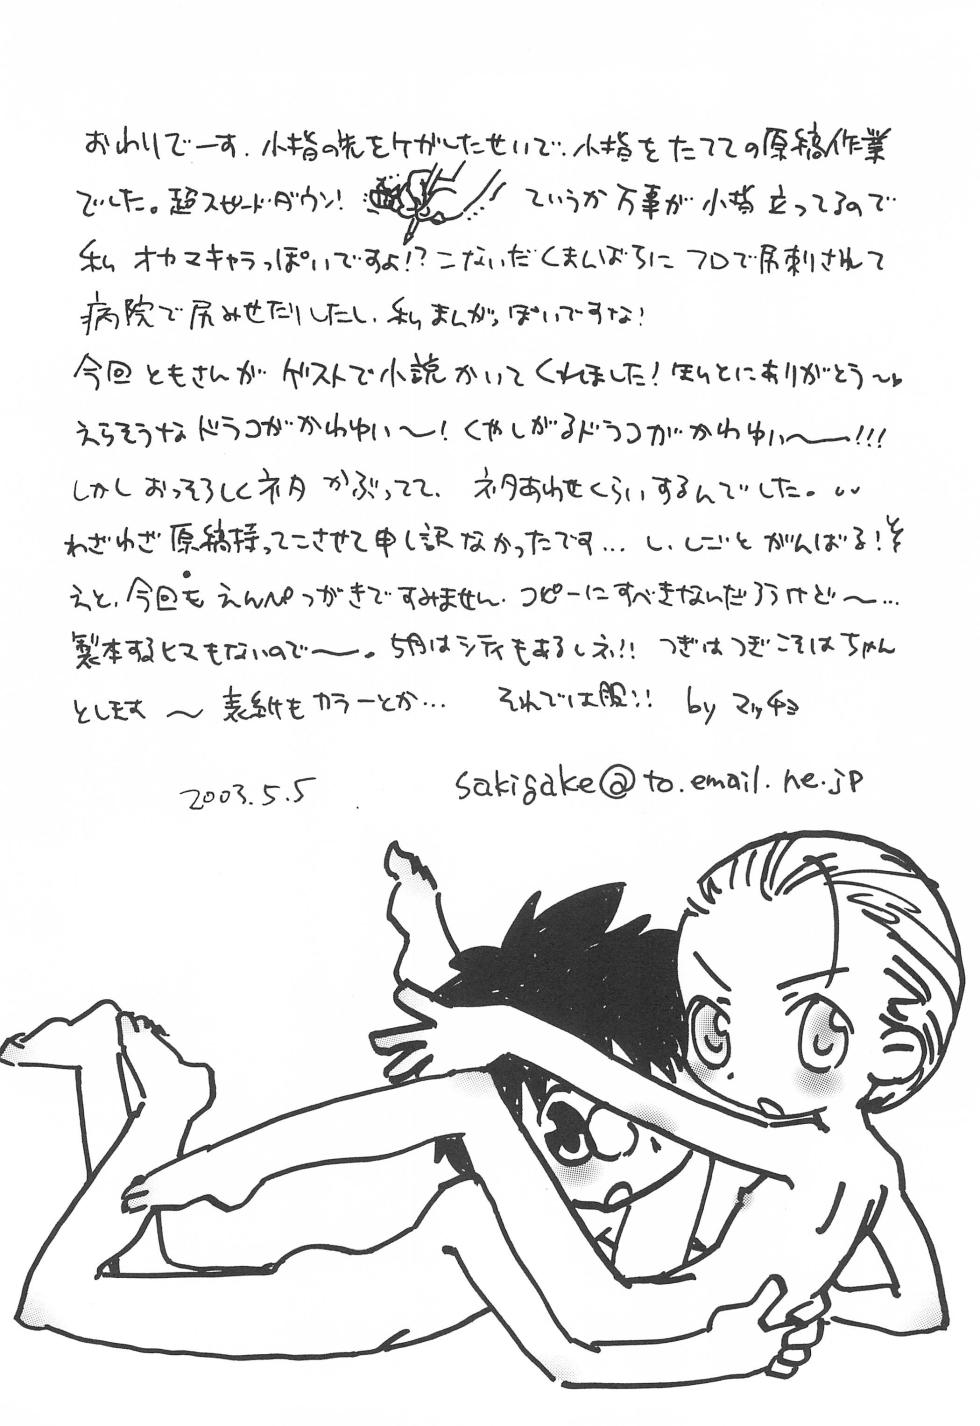 おわりでーす．小指の先をケガしたせいで．小指をたてての原稿作業
でした。超スピードダウン！ ていうか万事が小指立ってるので
私 オカマキャラっぽいですよ!? こないだくまんばちにフロで尻刺されて
病院で尻みせたりしたし、私まんがっぽいですな！
今回ともさんがゲストで小説かいてくれました！ほんとにありがとう〜♥
えらそうなドラコがかわゆい〜！くやしがるドラコがかわゆい〜ー!!!
しかしおっそろしくネタかぶってて、ネタあわせくらいするんでした。
わざわざ原稿持ってこさせて申し訳なかったです…し、しごとがんばる！
えと、今回もえんぴつがきですみません．コピーにすべきなんだろうけど〜…
製本するヒマもないので〜。5月はシティもあるしネ!! つぎはつぎこそはちゃん
とします〜 表紙もカラーとか… それでは股!! by マッチョ
2003.5.5
sakigake@to.email.ne.jp